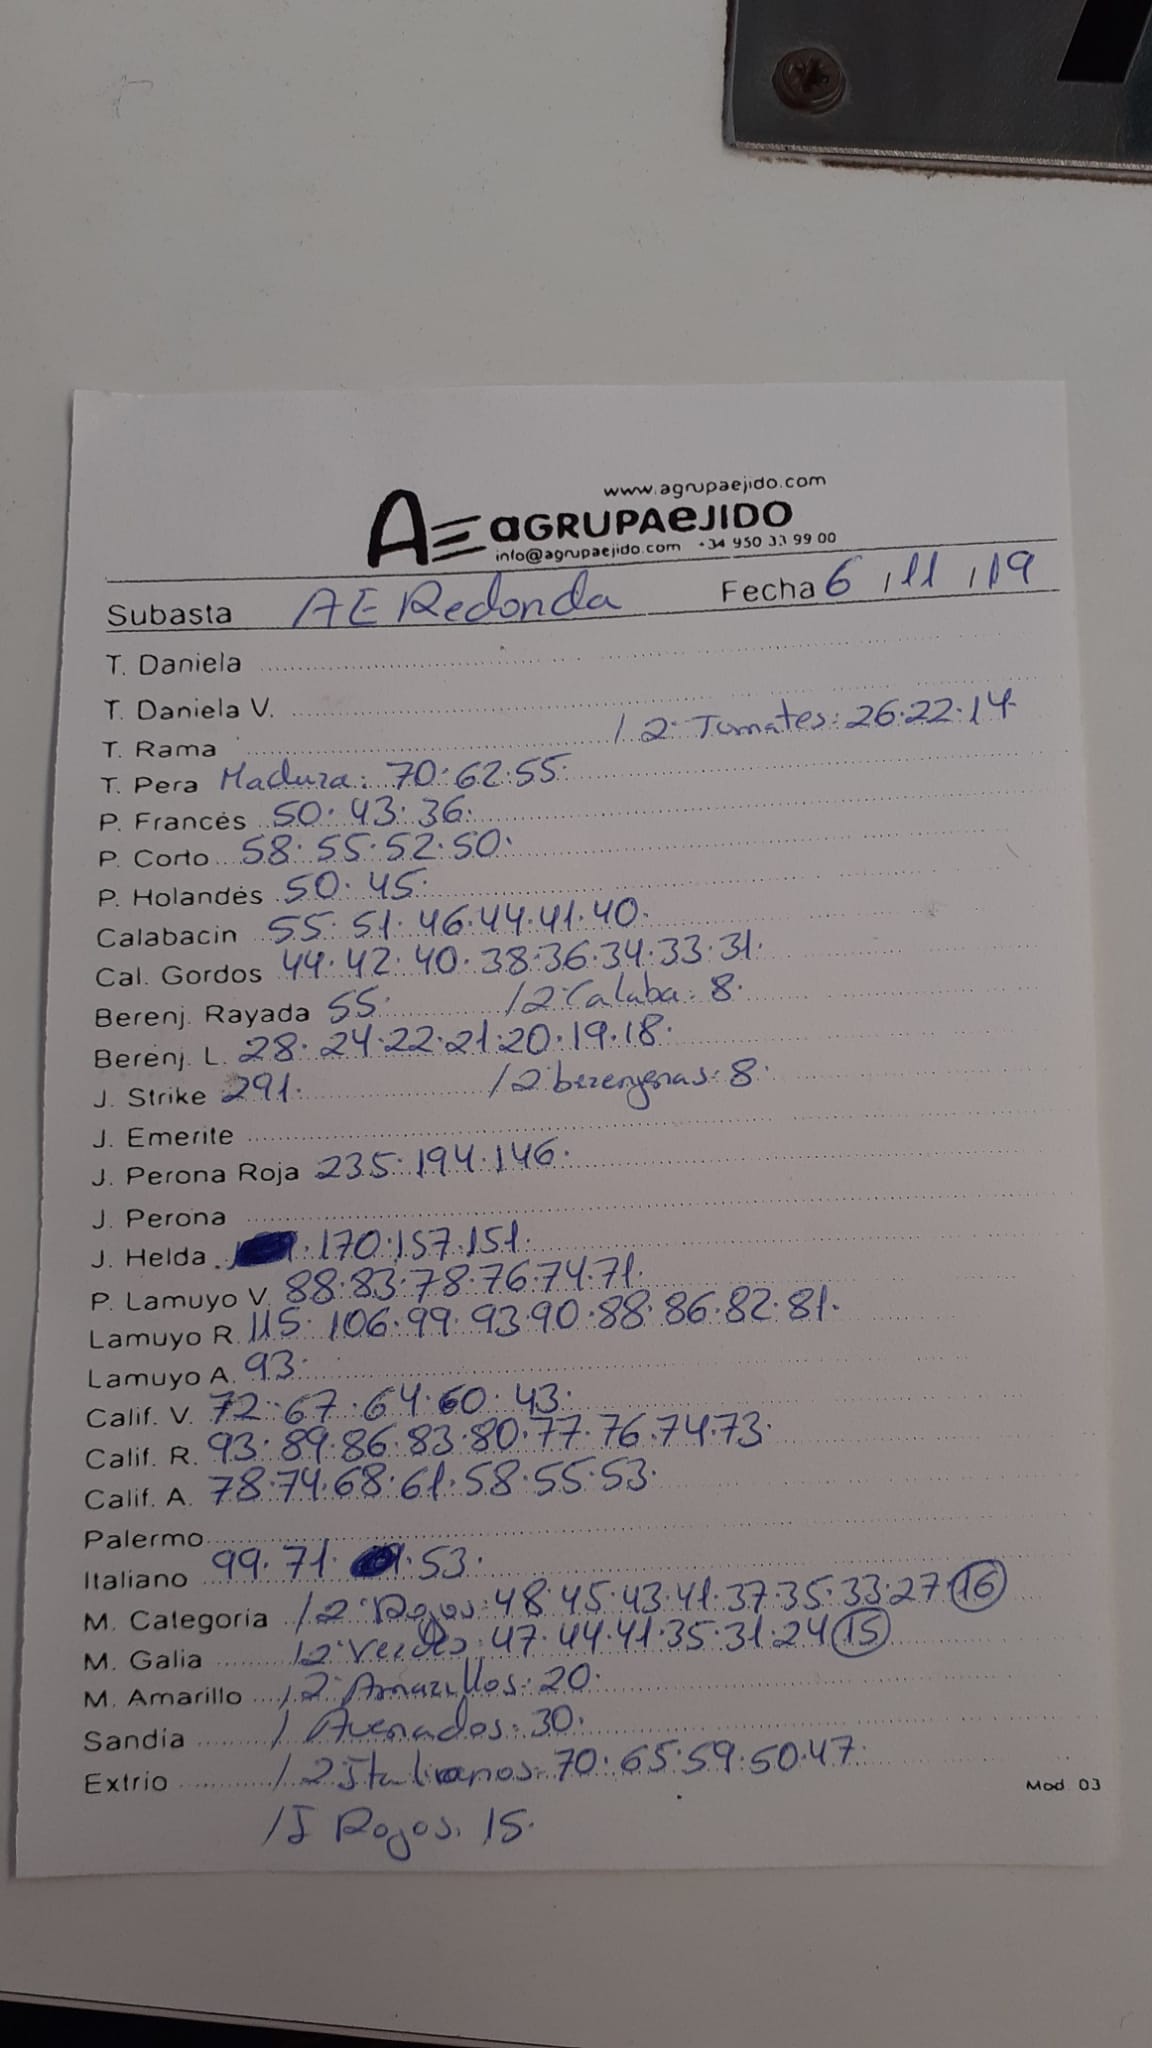 www.agrupaejido.com
AE aGRUPAeJIDO
info@agrupaejido.com +34 950 33 99 00
Subasta AE Redonda Fecha 6 / 11 / 19
T. Daniela
T. Daniela V.
T. Rama / 2ª Tomates: 26.22.14.
T. Pera Madura: 70.62.55.
P. Francés 50.43.36.
P. Corto 58.55.52.50.
P. Holandés 50.45.
Calabacin 55.51.46.44.41.40.
Cal. Gordos 44.42.40.38.36.34.33.31.
Berenj. Rayada 55. / 2ª Calaba: 8.
Berenj. L. 28.24.22.21.20.19.18.
J. Strike 291. / 2ª berenjenas: 8.
J. Emerite
J. Perona Roja 235.194.146.
J. Perona
J. Helda 170.157.151.
P. Lamuyo V. 88.83.78.76.74.71.
Lamuyo R. 115.106.99.93.90.88.86.82.81.
Lamuyo A. 93.
Calif. V. 72.67.64.60.43.
Calif. R. 93.89.86.83.80.77.76.74.73.
Calif. A. 78.74.68.61.58.55.53.
Palermo
Italiano 99.71. 53.
M. Categoria / 2ª Rojos: 48.45.43.41.37.35.33.27 16
M. Galia / 2ª Verdes: 47.44.41.35.31.24 15
M. Amarillo / 2ª Amarillos: 20.
Sandia / Avenados: 30.
Extrio / 2ª Italianos: 70.65.59.50.47.
Mod 03
/ I Rojos: 15.